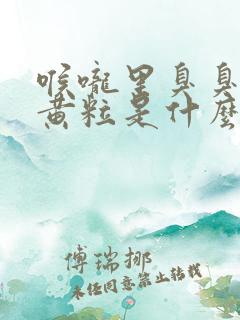 喉嚨里臭臭
黄粒是什麽
傅瑞挪
未经同意禁止转载